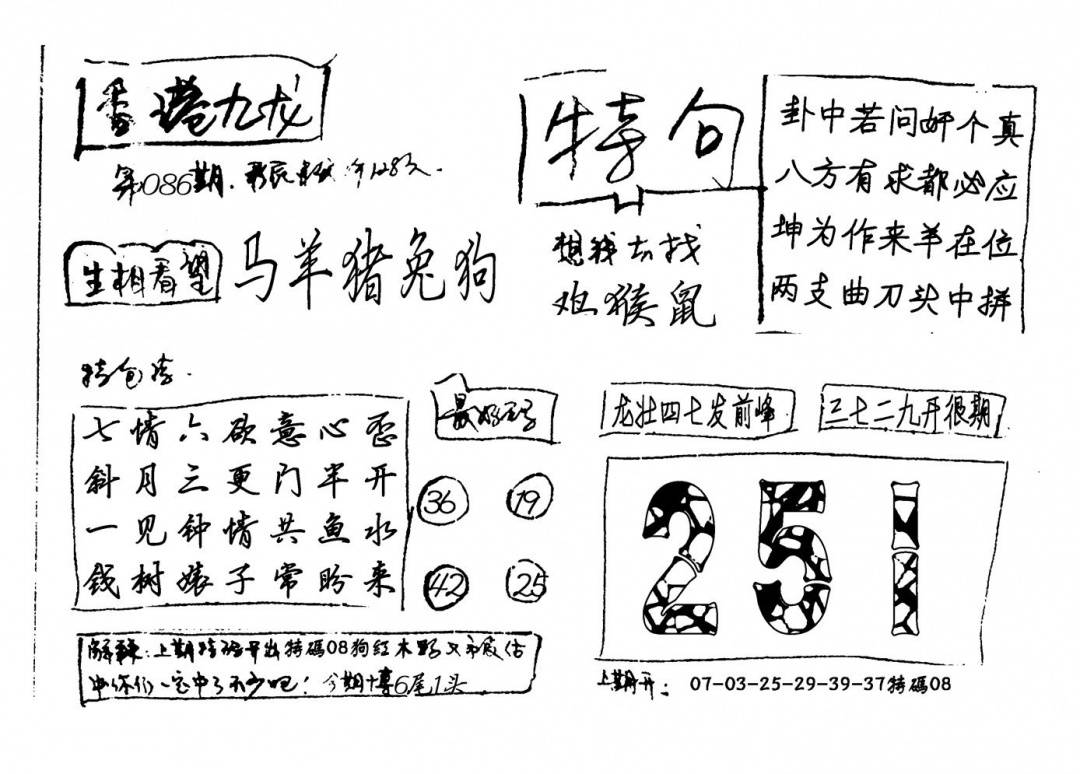 香港九龙
第086期
生相看望
马羊猪兔狗
特句
想我去找
鸡猴鼠
卦中若问好个真
八方有求都必应
坤为作来羊在位
两支曲刀头中拼
七情六欲意心歪
斜月三更门半开
一见钟情共鱼水
钱树婊子常盼来
最好
36
19
42
25
龙壮四七发前峰
三七二九开很期
251
解释:上期特码开出特碼08狗红木野
中你们一定中了不少吧!今期十專6尾1头
上期开:07-03-25-29-39-37特碼08